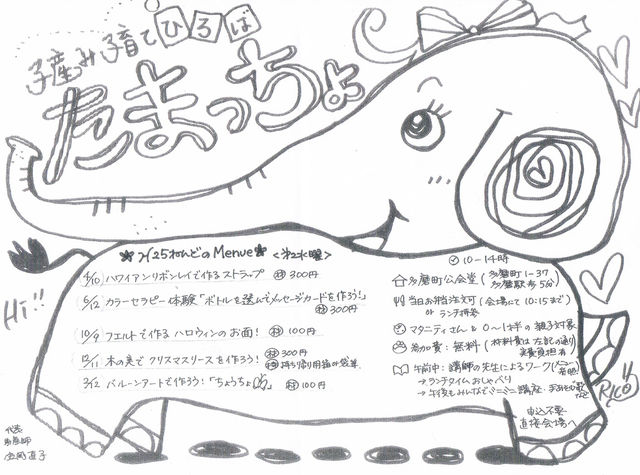 子産み子育てひろば
たまっちょ
H25ねんどのMenue <第2水曜>
4/10 ハワイアンリボンレイで作るストラップ 材300円
6/12 カラーセラピー体験「ボトルを選んでメッセージカードを作ろう!」
材300円
10/9 フェルトで作る ハロウィンのお面! 材100円
12/11 木の実で クリスマスリースを作ろう! 材300円
持ち帰り用箱or袋等
3/12 バルーンアートで作ろう!「ちょうちょ」 材100円
10-14時
多磨町公会堂 (多磨町1-37
多磨駅歩5分)
当日お弁当注可 (会場にて10:15まで)
or ランチ持参
マタニティさん & 0〜1才半の親子対象
参加費:無料 (材料費は左記の通り
実費負担有)
午前中:講師の先生によるワーク(メニュー参照)
→ランチタイムおしゃべり
→午後もみんなでミニミニ講座・手あそびetc
申込不要
直接会場へ
Hi!!
RICO
代表
助産師
直子